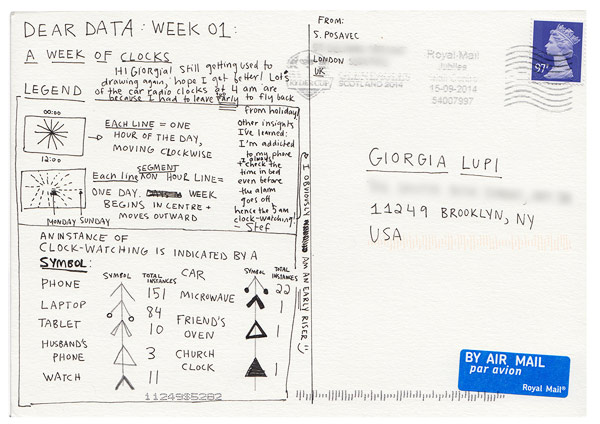 DEAR DATA: WEEK 01:
A WEEK OF CLOCKS
HI GIORGIA! Still getting used to
drawing again, hope I get better! Lots
of the car radio clocks at 4 am are
because I had to leave early to fly back
from holiday!
LEGEND
00:00
12:00
EACH LINE = ONE
HOUR OF THE DAY,
MOVING CLOCKWISE
Each line SEGMENT
ON HOUR LINE=
ONE DAY. WEEK
BEGINS IN CENTRE +
MOVES OUTWARD
MONDAY SUNDAY
Other insights
I've learned:
I'm addicted
to my phone
+ I always
check the
time in bed
even before
the alarm
goes off,
hence the 5am
clock-watching!
- Stef
& I OBVIOUSLY AM AN EARLY RISER
AN INSTANCE OF
CLOCK-WATCHING IS INDICATED BY A
SYMBOL:
SYMBOL TOTAL INSTANCES
PHONE 151
LAPTOP 84
TABLET 10
HUSBAND'S
PHONE 3
WATCH 11
SYMBOL TOTAL INSTANCES
CAR 22
MICROWAVE 1
FRIEND'S
OVEN 1
CHURCH
CLOCK 1
11249$5282
FROM:
S. POSAVEC
LONDON
UK
Royal Mail
SCOTLAND 2014
15-09-2014
54007997
97p
GIORGIA LUPI
11249 BROOKLYN, NY
USA
BY AIR MAIL
par avion
Royal Mail®